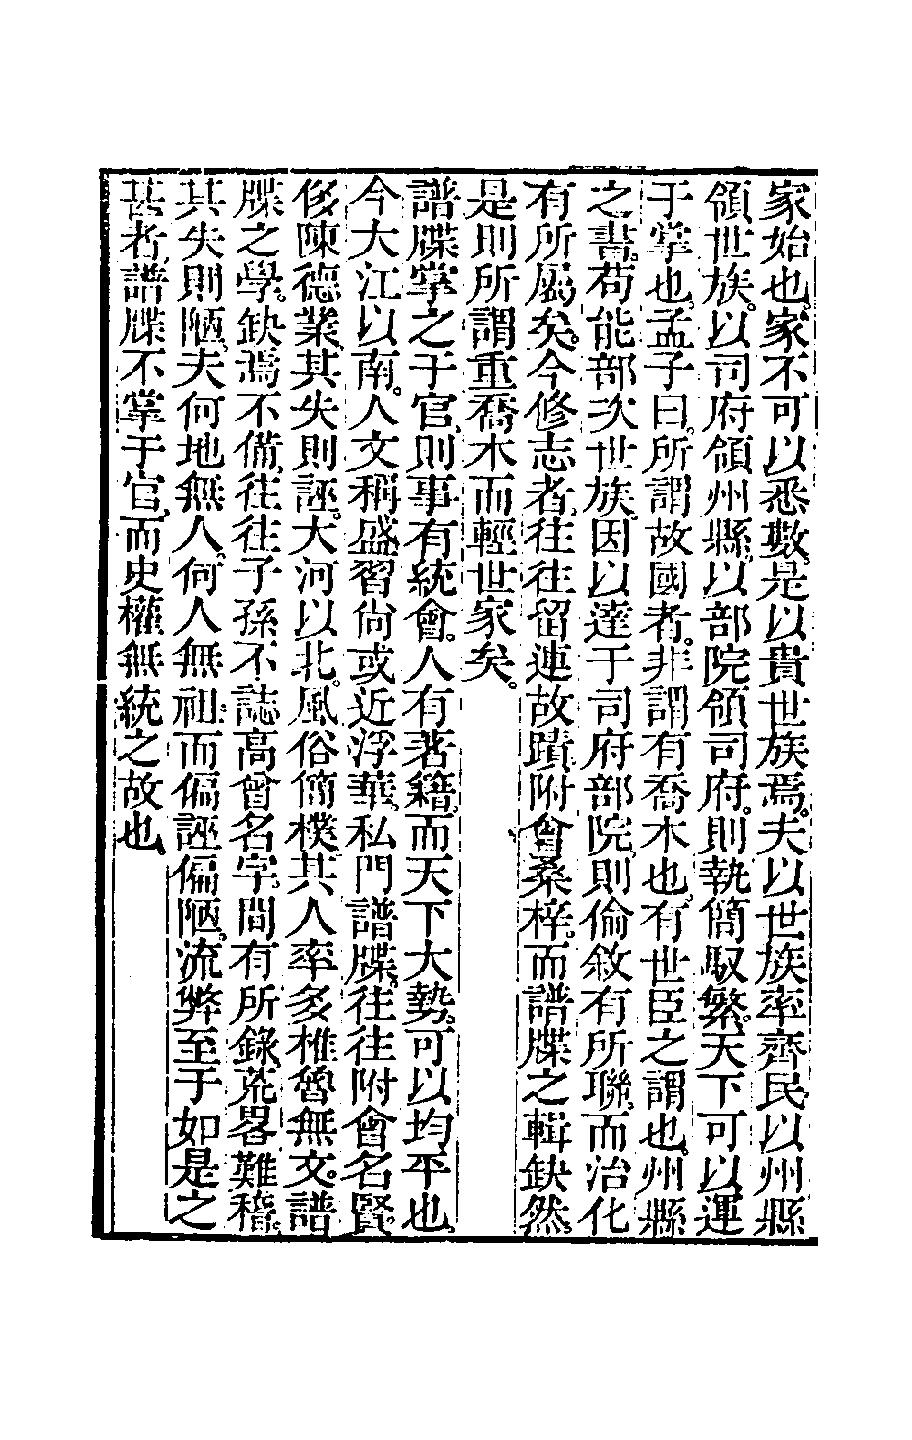 家始也。家不可以悉數。是以貴世族焉。夫以世族率齊民。以州縣
領世族。以司府領州縣。以部院領司府。則執簡馭繁。天下可以運
于掌也。孟子曰。所謂故國者。非謂有喬木也。有世臣之謂也。州縣
之書。苟能部次世族。因以達于司府部院。則倫敘有所聯。而治化
有所屬矣。今修志者。往往留連故蹟。附會桑梓。而譜牒之輯缺然。
是則所謂重喬木而輕世家矣。
譜牒掌之于官。則事有統會。人有著籍。而天下大勢。可以均平也。
今大江以南。人文稱盛。習尚或近浮華。私門譜牒。往往附會名賢。
侈陳德業。其失則誣。大河以北。風俗簡樸。其人率多椎魯無文。譜
牒之學。缺焉不備。往往子孫不誌高曾名字。間有所錄。荒畧難稽。
其失則陋。夫何地無人。何人無祖。而偏誣偏陋。流弊至于如是之
甚者。譜牒不掌于官。而史權無統之故也